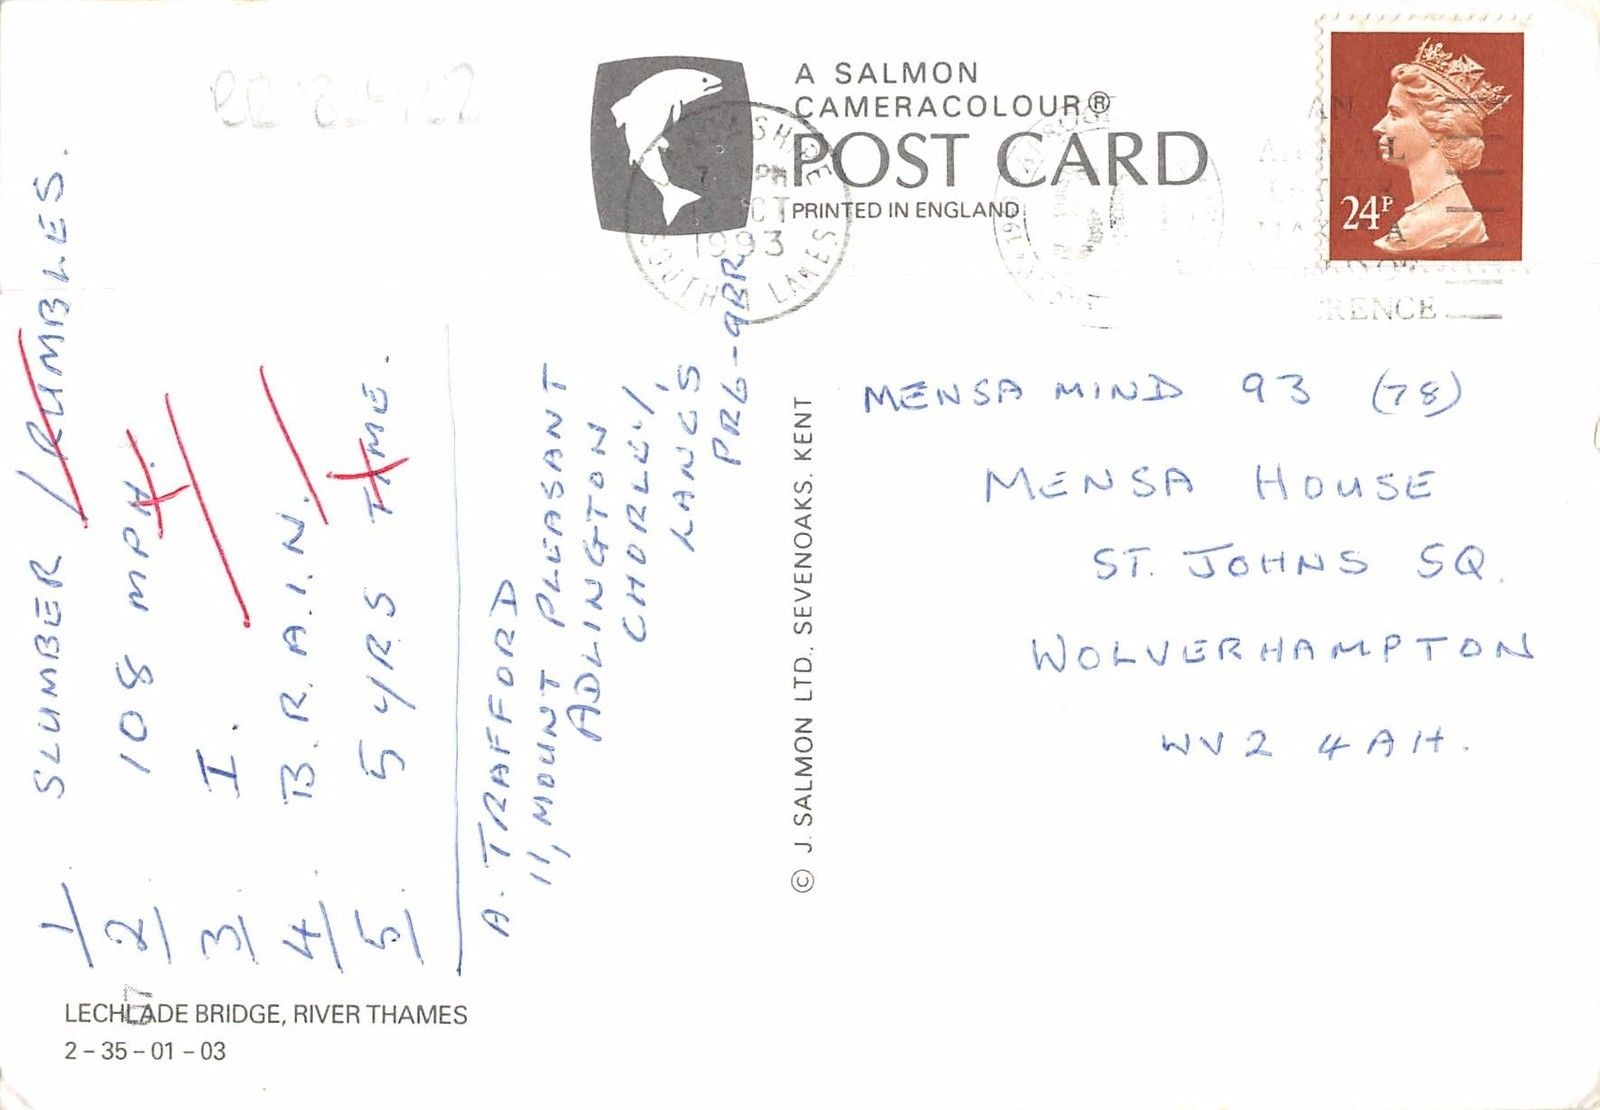 A SALMON
CAMERACOLOUR®
POST CARD
PRINTED IN ENGLAND
24P
1993
SOUTH LAKES
RENCE
1 SLUMBER / RUMBLES.
2 108 MPH.
3 I.
4 B.R.A.I.N.
5. 5 YRS TIME.
A. TRAFFORD
11, MOUNT PLEASANT
ADLINGTON
CHORLEY,
LANCS
PR6-9BR
© J. SALMON LTD. SEVENOAKS. KENT
MENSA MIND 93 (78)
MENSA HOUSE
ST. JOHNS SQ.
WOLVERHAMPTON
WV2 4AH.
LECHLADE BRIDGE, RIVER THAMES
2-35-01-03